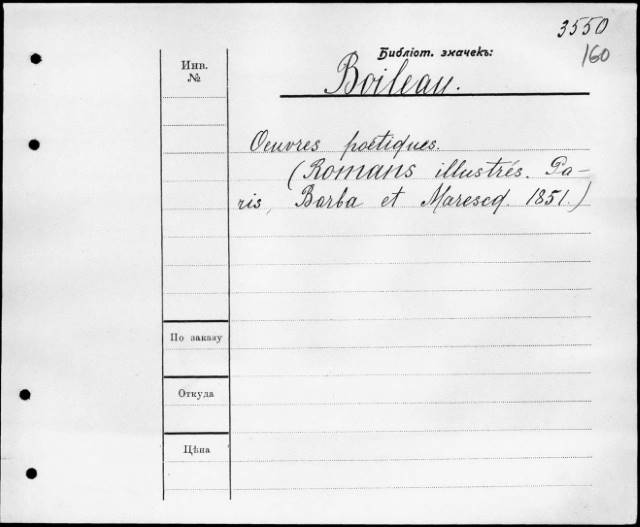 3550
160
Библіот. значекъ:
Инв.
№
Boileau.
Oeuvres poétiques.
(Romans illustrés. Pa-
ris, Barba et Marescq. 1851.)
По заказу
Откуда
Цѣна